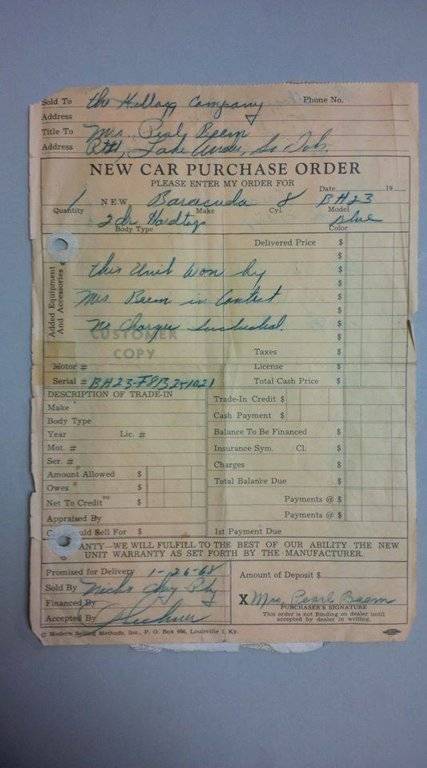 Sold To the Kellogg Company Phone No.
Address
Title To Mrs. Pearl Baem
Address Rt 1, Lake Andes, So Dak.
NEW CAR PURCHASE ORDER
PLEASE ENTER MY ORDER FOR
Date 19
1 NEW Baracuda 8 BH23
Quantity Make Cyl. Model
2 dr Hardtop Blue
Body Type Color
Added Equipment And Accessories
Delivered Price $
$
this Unit Won by $
$
Mrs. Baem in Contest $
$
No Charges $
CUSTOMER
COPY
Taxes $
Motor # License $
Serial # BH23-F8B251021 Total Cash Price $
DESCRIPTION OF TRADE-IN Trade-In Credit $
Make Cash Payment $
Body Type
Year Lic. # Balance To Be Financed $
Mot. # Insurance Sym. Cl. $
Ser. # Charges $
Amount Allowed $ Total Balance Due $
Owes $
Net To Credit $ Payments @ $
Appraised By Payments @ $
Could Sell For $ 1st Payment Due
WE WILL FULFILL TO THE BEST OF OUR ABILITY THE NEW
UNIT WARRANTY AS SET FORTH BY THE MANUFACTURER.
Promised for Delivery 1-26-68 Amount of Deposit $
Sold By
Financed By X Mrs. Pearl Baem
PURCHASER'S SIGNATURE
Accepted By This order is not Binding on dealer until
accepted by dealer in writing.
© Modern Selling Methods, Inc., P. O. Box 996, Louisville 1, Ky.